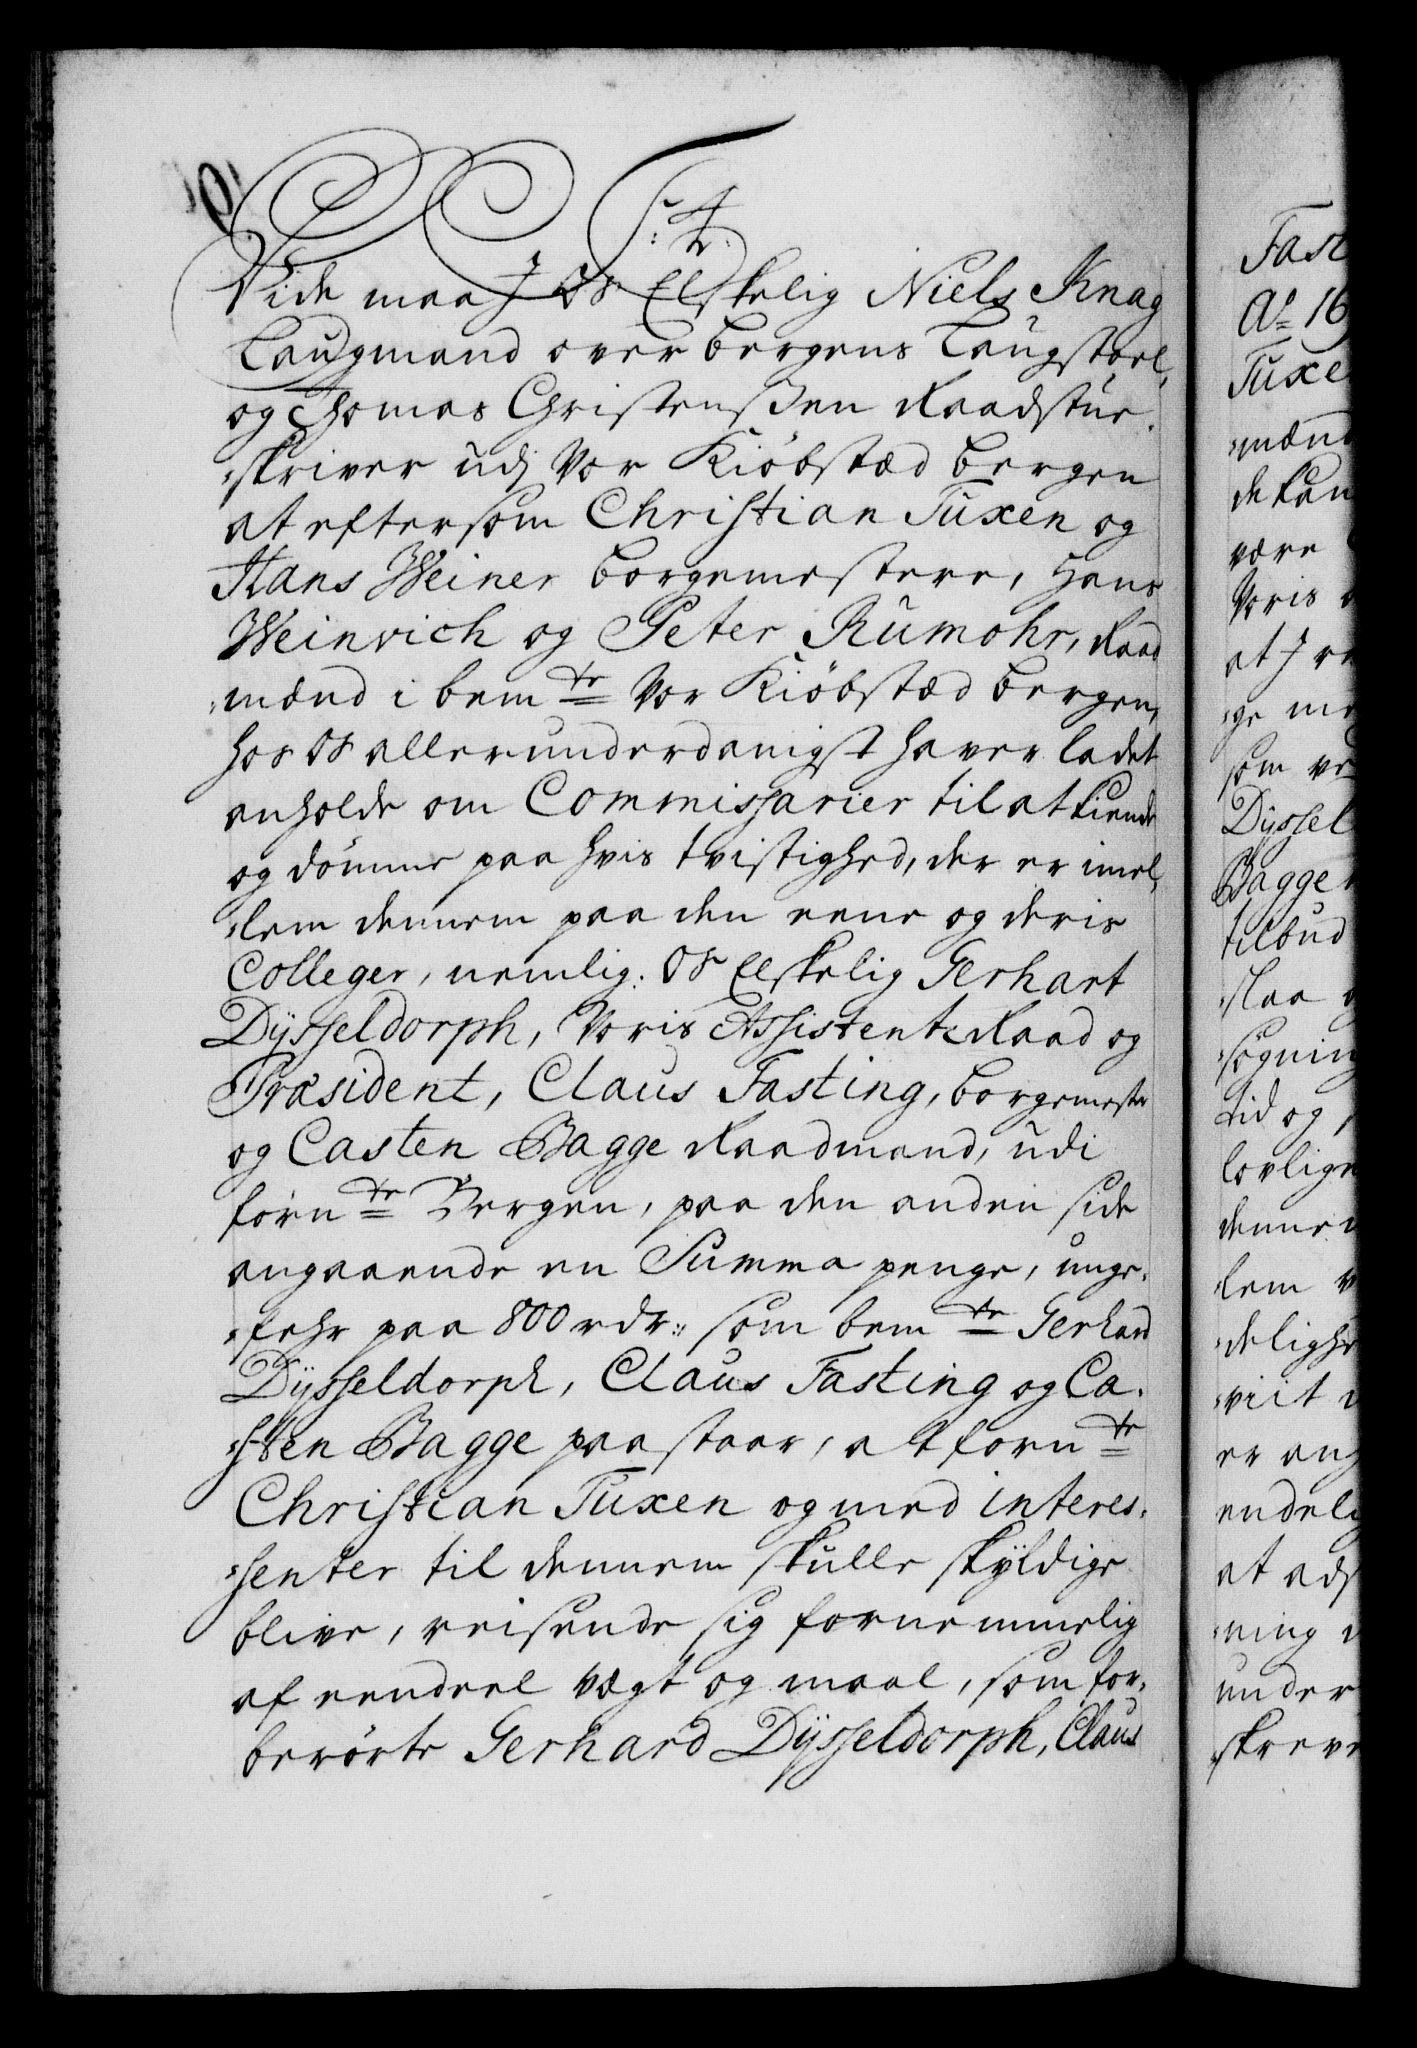 Vide maa J OS Elskelig Niels Knag
Laugmand over bergens Laugstoel,
og Thomas Christenszen Raadstue-
-skriver udj Vor Kiöbstæd bergen
at eftersom Christian Tuxen og
Hans Weiner borgemestere, Hans
Weinvich og Peter Rumohr, Raad
-mænd i bem te Vor Kiöbstæd bergen,
hos OS allerunderdanigst haver ladet
anholde om Commissarier til at kiende
og dömme paa hvis tvistighed, der er imel-
-lem dennem paa den eene og deris
Colleger, nemlig: OS Elskelig Gerhart
Dÿsseldorph, Voris Assistentz Raad og
Præsident, Claus Fasting, borgemester
og Casten Bagge Raadmand, udi
forn te Bergen, paa den anden side
angaaende en Summa penge, unge-
-fehr paa 800 rdr:, som bem te Gerhard
Dÿsseldorph, Claus Fasting og Ca-
-sten Bagge paastaar, at forn te
Christian Tuxen og med interes-
-senter til dennem skulle skÿldige
blive, reisende sig fornemmelig
af eendeel vægt og maal, som for-
berörte Gerhard Dÿsseldorph, Claus
Fast
Ao 16
Tuxe
-mænd
være
Voris
at J
som
Dÿssel
Bagge
tilbud
-slaa
-sögning
tid og
-lem
-viit
er ang
at
-ning
under